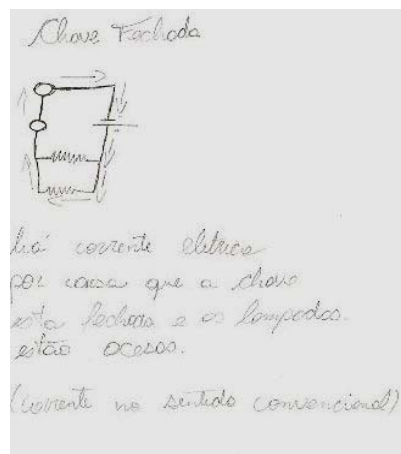 Chave Fechada
há corrente elétrica
por causa que a chave
esta fechada e as lampadas
estão acesas.
(corrente no sentido convencional)